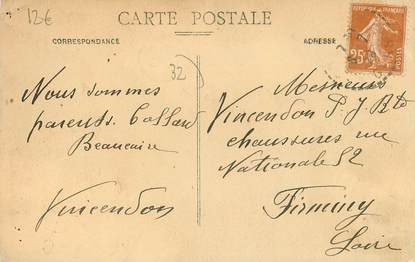 12€
CARTE POSTALE
CORRESPONDANCE
ADRESSE
RÉPUBLIQUE FRANÇAISE
25c
POSTES
32
Nous sommes
parents. Collard
Beaucaire
Vincendon
Messieurs
Vincendon P. J. Rte
chaussures rue
Nationale 52
Firminy
Loire